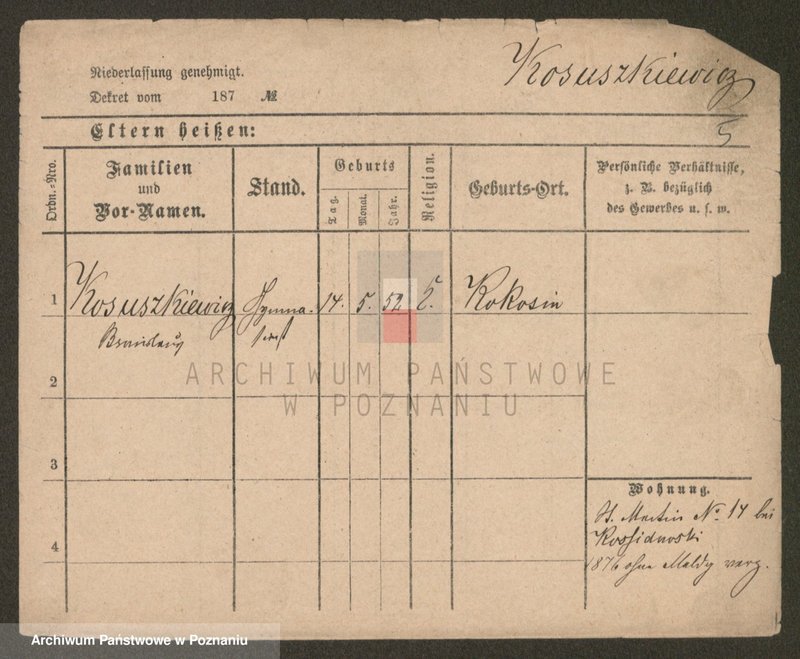 Niederlassung genehmigt.
Dekret vom 187 №
Kosuszkiewicz
5
Eltern heißen:
Ordn.-Nro.
Familien
und
Vor-Namen.
Stand.
Geburts
Tag.
Monat.
Jahr.
Religion.
Geburts-Ort.
Persönliche Verhältnisse,
z. B. bezüglich
des Gewerbes u. s. w.
1 Kosuszkiewicz Gymna- 14. 5. 52 Kokosin
Bronislaus
2
ARCHIWUM PAŃSTWOWE
W POZNANIU
3
Wohnung.
St. Martin No 14 bei
4
1876 ohne Meldg verz.
Archiwum Państwowe w Poznaniu